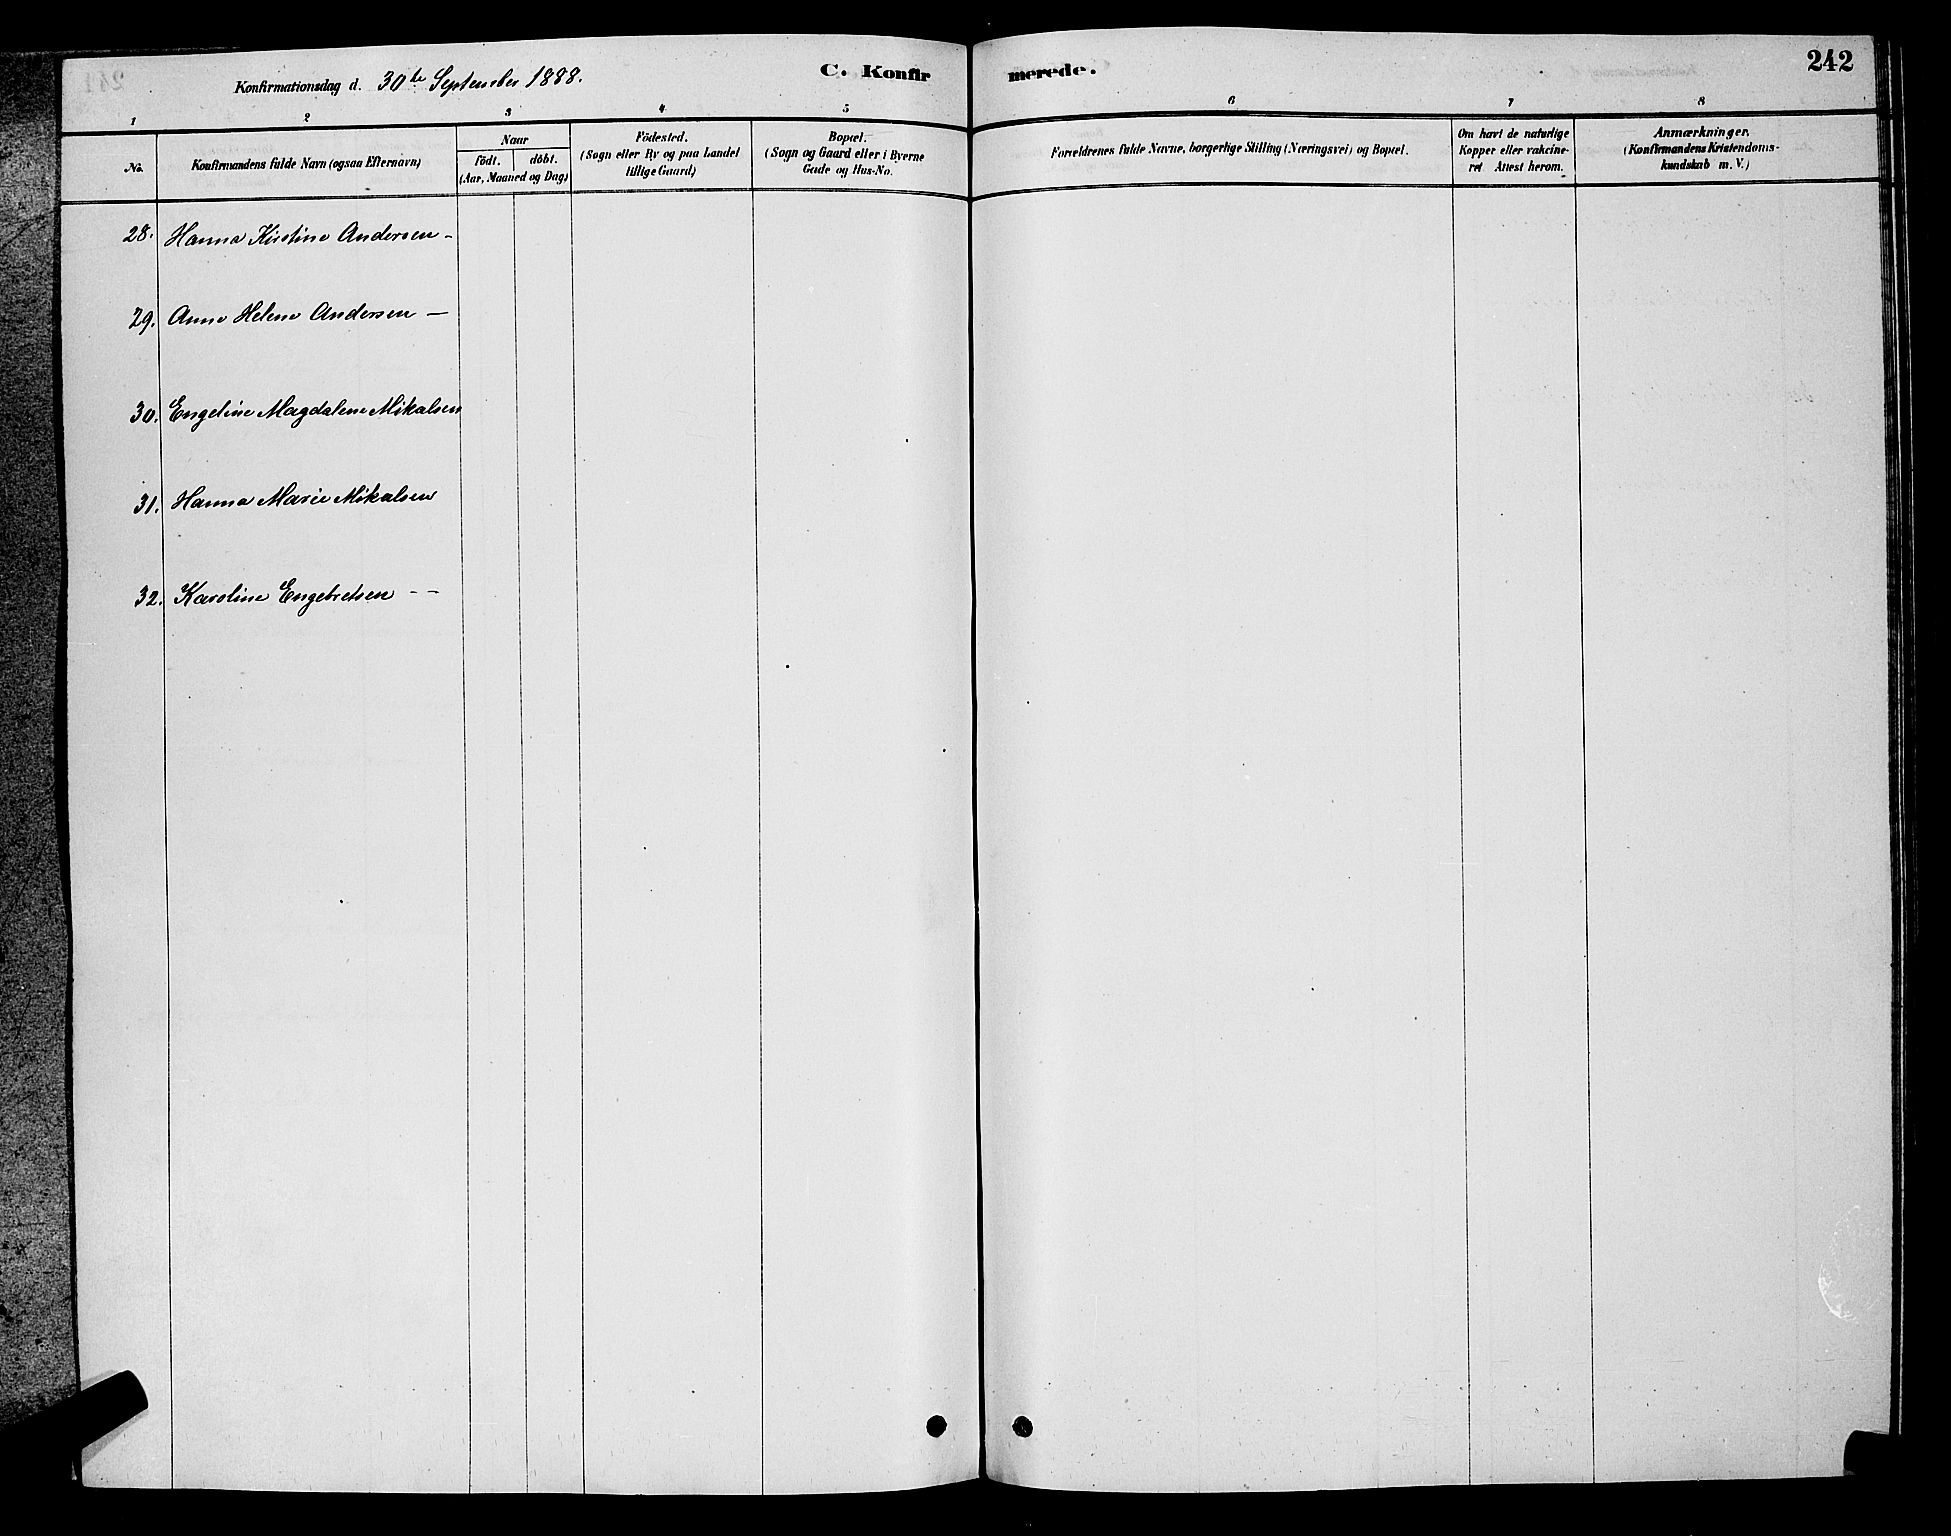 Konfirmationsdag d. 30te September 1888.
C. Konfirmerede.
242
1 2 3 4 5 6 7 8
No.
Konfirmandens fulde Navn (ogsaa Efternavn)
Naar
födt. döbt.
(Aar, Maaned og Dag)
Födested.
(Sogn eller By og paa Landet
tillige Gaard)
Bopæl.
(Sogn og Gaard eller i Byerne
Gade og Hus-No.
Forældrenes fulde Navne, borgerlige Stilling (Næringsvei) og Bopæl.
Om havt de naturlige
Kopper eller vakcine-
ret Attest herom.
Anmærkninger.
(Konfirmandens Kristendoms-
kundskab m. V.)
28. Hanna Kirstine Andersen -
29. Anne Helene Andersen —
30. Engeline Magdalene Mikalsen
31. Hanna Marie Mikalsen
32. Karoline Engebretsen - -